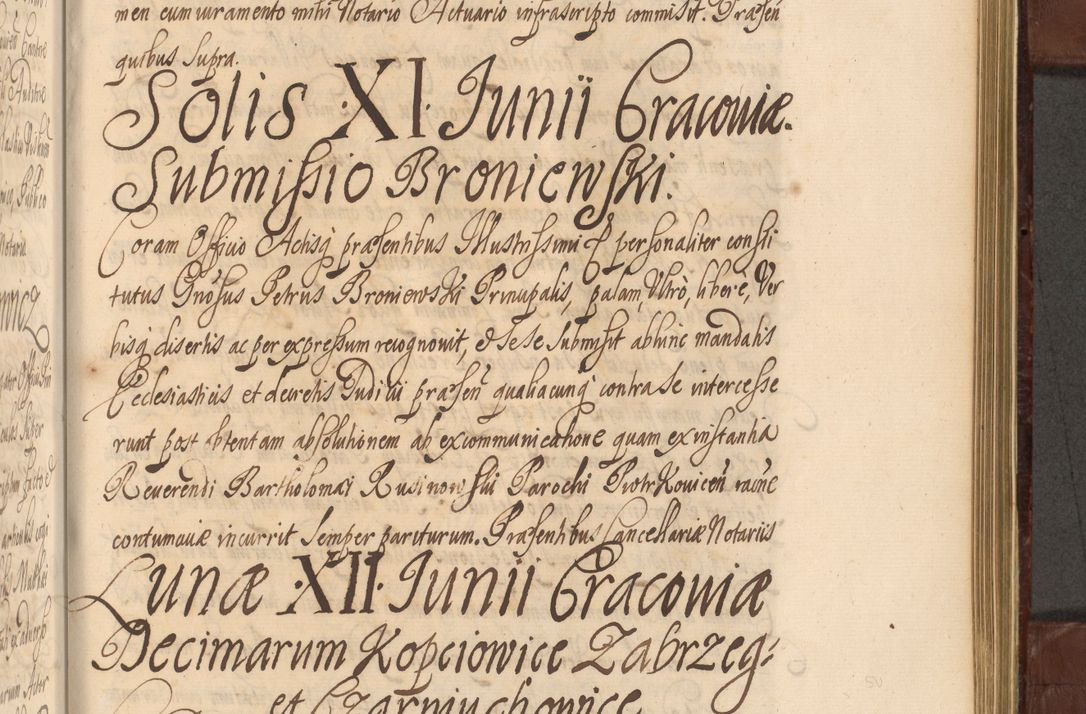 men cum iuramento mihi Notario Actuario infrascripto commisit. Præsen
quibus supra.
Solis XI Junii Cracoviæ.
Submissio Broniewski.
Coram Officio Actisq præsentibus Illustrissimi & personaliter consti
tutus Gnosus Petrus Broniewski Principalis, palam Ultrò, libere, Ver
bisq disertis ac per expressum recognovit, & sese submisit abhinc mandatis
Ecclesiasticis et decretis Judicii præsen qualiacunq contra se intercesse
runt post obtentam absolutionem ab excommunicatione quam ex instantia
Reverendi Bartholomæi Rusinowski Parochi Piotrkovicen raõne
contumaciæ incurrit semper pariturum. Præsentibus Cancellariæ Notariis
Lunæ XII Junii Cracoviæ
Decimarum Kopciowice Zabrzeg:
et Czarniuchowice